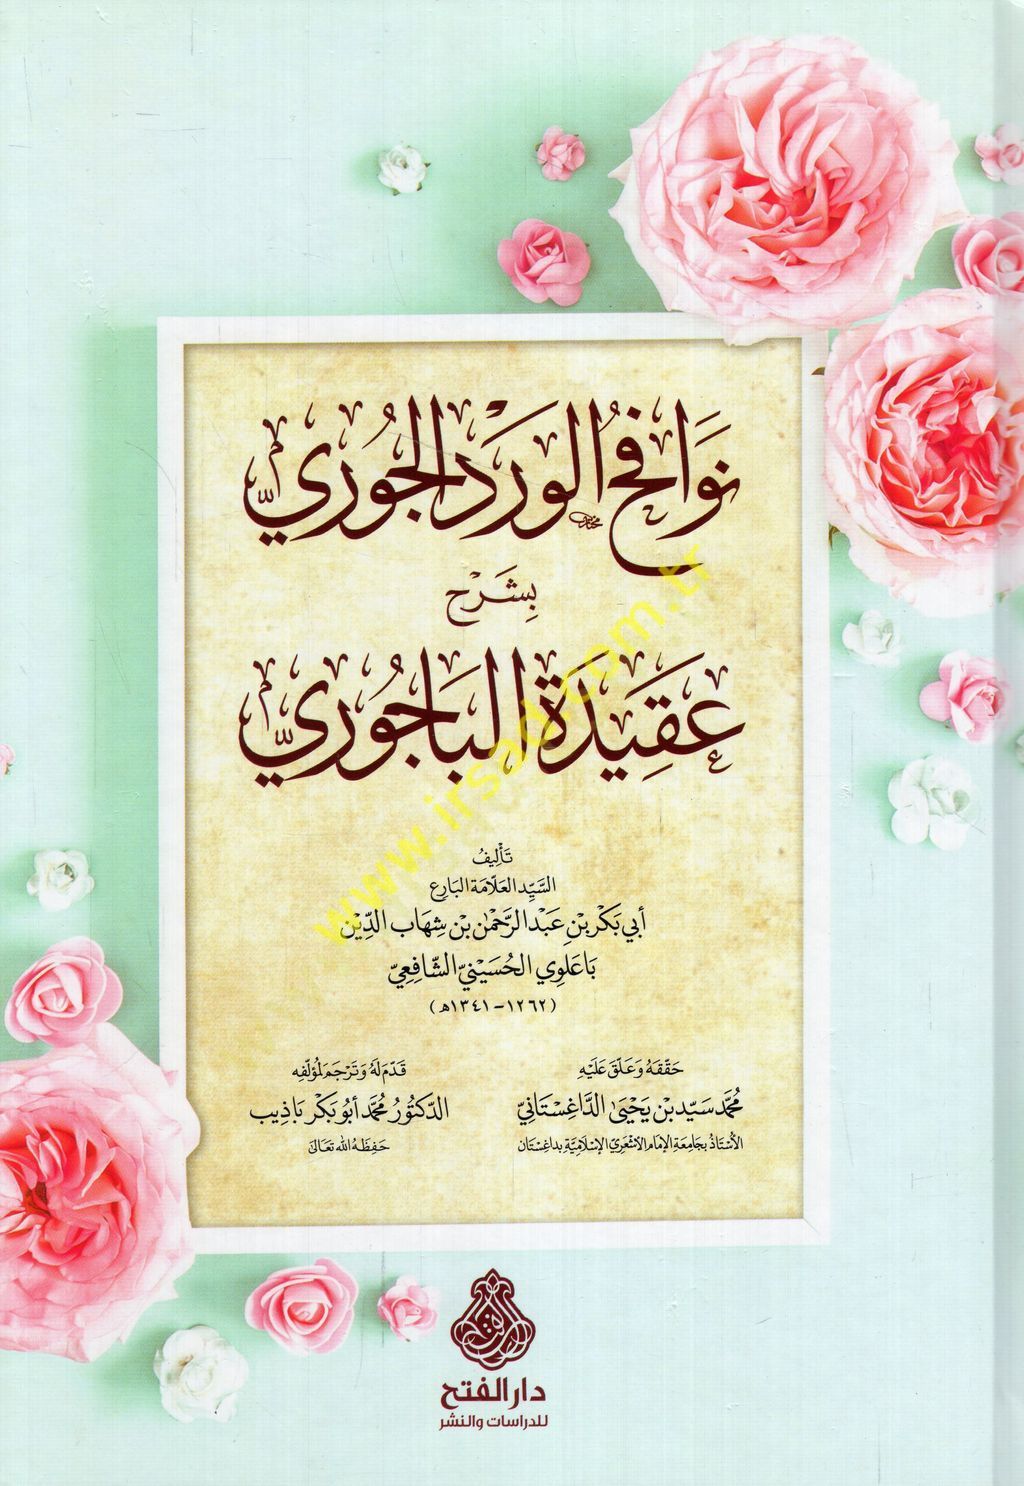 نَوَافِحُ الوَرْدِ الجُورِيِّ
بِشَرْحِ
عَقِيدَةِ البَاجُورِيِّ
تَأْلِيفُ
السَّيِّدِ العَلَّامَةِ البَارِعِ
أَبِي بَكْرِ بْنِ عَبْدِ الرَّحْمٰنِ بْنِ شِهَابِ الدِّيْنِ
بَاعَلَوِي الحُسَيْنِيِّ الشَّافِعِيِّ
(١٢٦٢ – ١٣٤١هـ)
حَقَّقَهُ وَعَلَّقَ عَلَيْهِ
مُحَمَّد سَيِّد بْن يَحْيَىٰ الدَّاغِسْتَانِيّ
الأُسْتَاذُ بِجَامِعَةِ الإِمَامِ الأَشْعَرِيِّ الإِسْلَامِيَّةِ بِدَاغِسْتَان
قَدَّمَ لَهُ وَتَرْجَمَ لِمُؤَلِّفِهِ
الدُّكْتُورُ مُحَمَّد أَبُو بَكْر بَاذِيب
حَفِظَهُ اللهُ تَعَالَىٰ
www.irsad.com.tr
دار الفتح
للدراسات والنشر